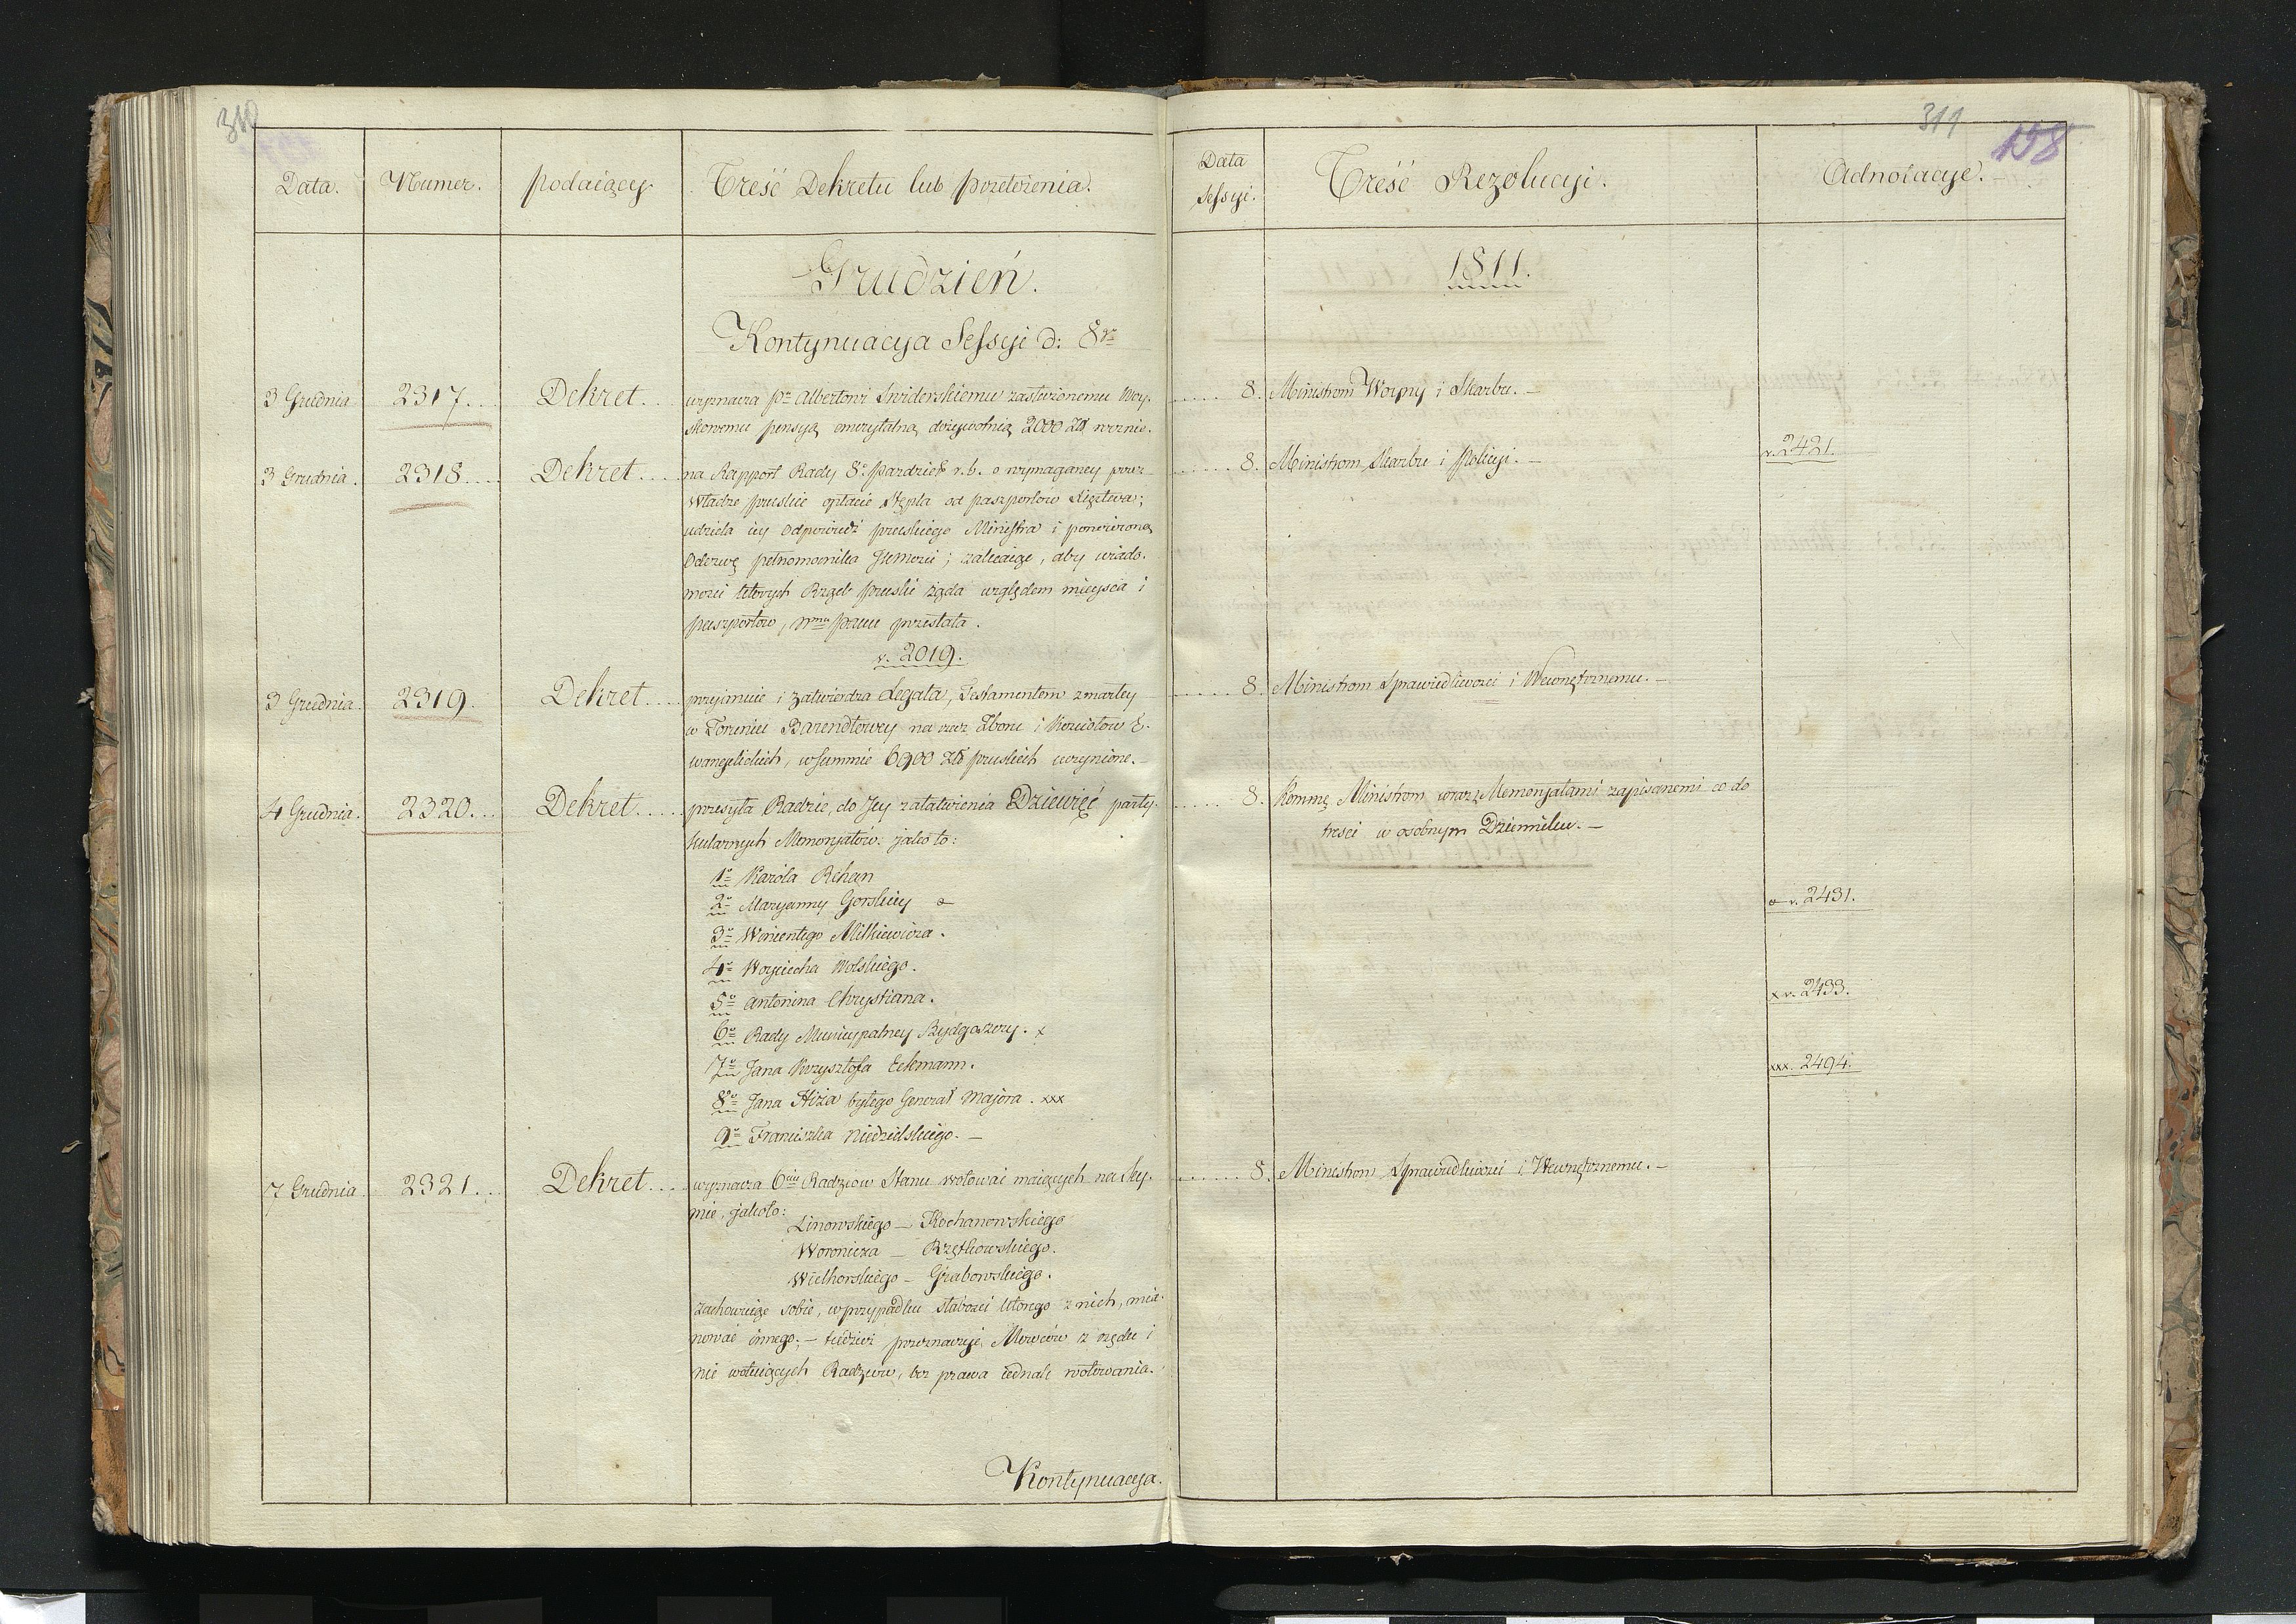 310
Data. Numer. podaiący. Treść Dekretu lub przełożenia.
Grudzień.
Kontynuacya Sessyi d: 8go
3 Grudnia 2317... Dekret... wyznacza Pu Albertowi Swiderskiemu zasłużonemu Woy-
skowemu pensyą emerytalną dożywotnią 2000 Zł. rocznie.
3 Grudnia. 2318.... Dekret.... na Rapport Rady 8o Paźdźier r. b. o wymaganey przez
Władze pruskie opłacie stępla od paszportów Xięstwa;
udziela iey Odpowiedź pruskiego Ministra i ponowioną
Odezwę pełnomocnika ; zalecaiąc, aby wiado-
mości których Rząd pruski żąda względem mieysca i
paszportów, przesłała.
v. 2019.
3 Grudnia. 2319. Dekret.... przyimuie i zatwierdza Legata, Testamentem zmarłey
w Toruniu Barendtowey na rzecz Zboru i Kościołow E-
wangelickich, w summie 6900 Zł pruskich uczynione.
4 Grudnia. 2320... Dekret..... przesyła Radzie, do Jey załatwienia Dziewięć party-
kularnych Memoryałów: jako to:
1o Karola Rehan
2o Maryanny Gorskiey o
3o Wincentego Milkiewicza.
4o Woyciecha Wolskiego.
5o Antonina Chrystiana.
6o Rady Municypalney Bydgoszczy. x
7o Jana Krzysztofa Eckmann.
8o Jana Hiża byłego Generał Majora. xxx
9o Franciszka Niedzielskiego. —
7 Grudnia. 2321... Dekret.... wyznacza 6ciu Radzców Stanu wotować maiących na Sey-
mie, jakoto:
Linowskiego — Kochanowskiego
Woronicza — Rzętkowskiego.
Wielhorskiego — Grabowskiego.
zachowuiąc sobie, w przypadku słabości którego z nich, mia-
nować innego; — tudzież przeznaczyć Mowców z rzędu i
nie wotuiących Radzców, bez prawa iednak wotowania.
Kontynuacya.
311
158
Data Sessyi. Treść Rezolucyi. Adnotacye. —
1811.
..... 8. Ministrom Woyny i Skarbu. —
...... 8. Ministrom Skarbu i Policyi. — v. 2421.
..... 8. Ministrom Sprawiedliwości i Wewnętrznemu. —
...... 8. Kommę Ministrom wraz z Memoryałami zapisanemi co do
treści w osobnym Dzienniku. —
o v. 2431.
x v. 2433.
xxx. 2494.
....... 8. Ministrom Sprawiedliwości i Wewnętrznemu. —